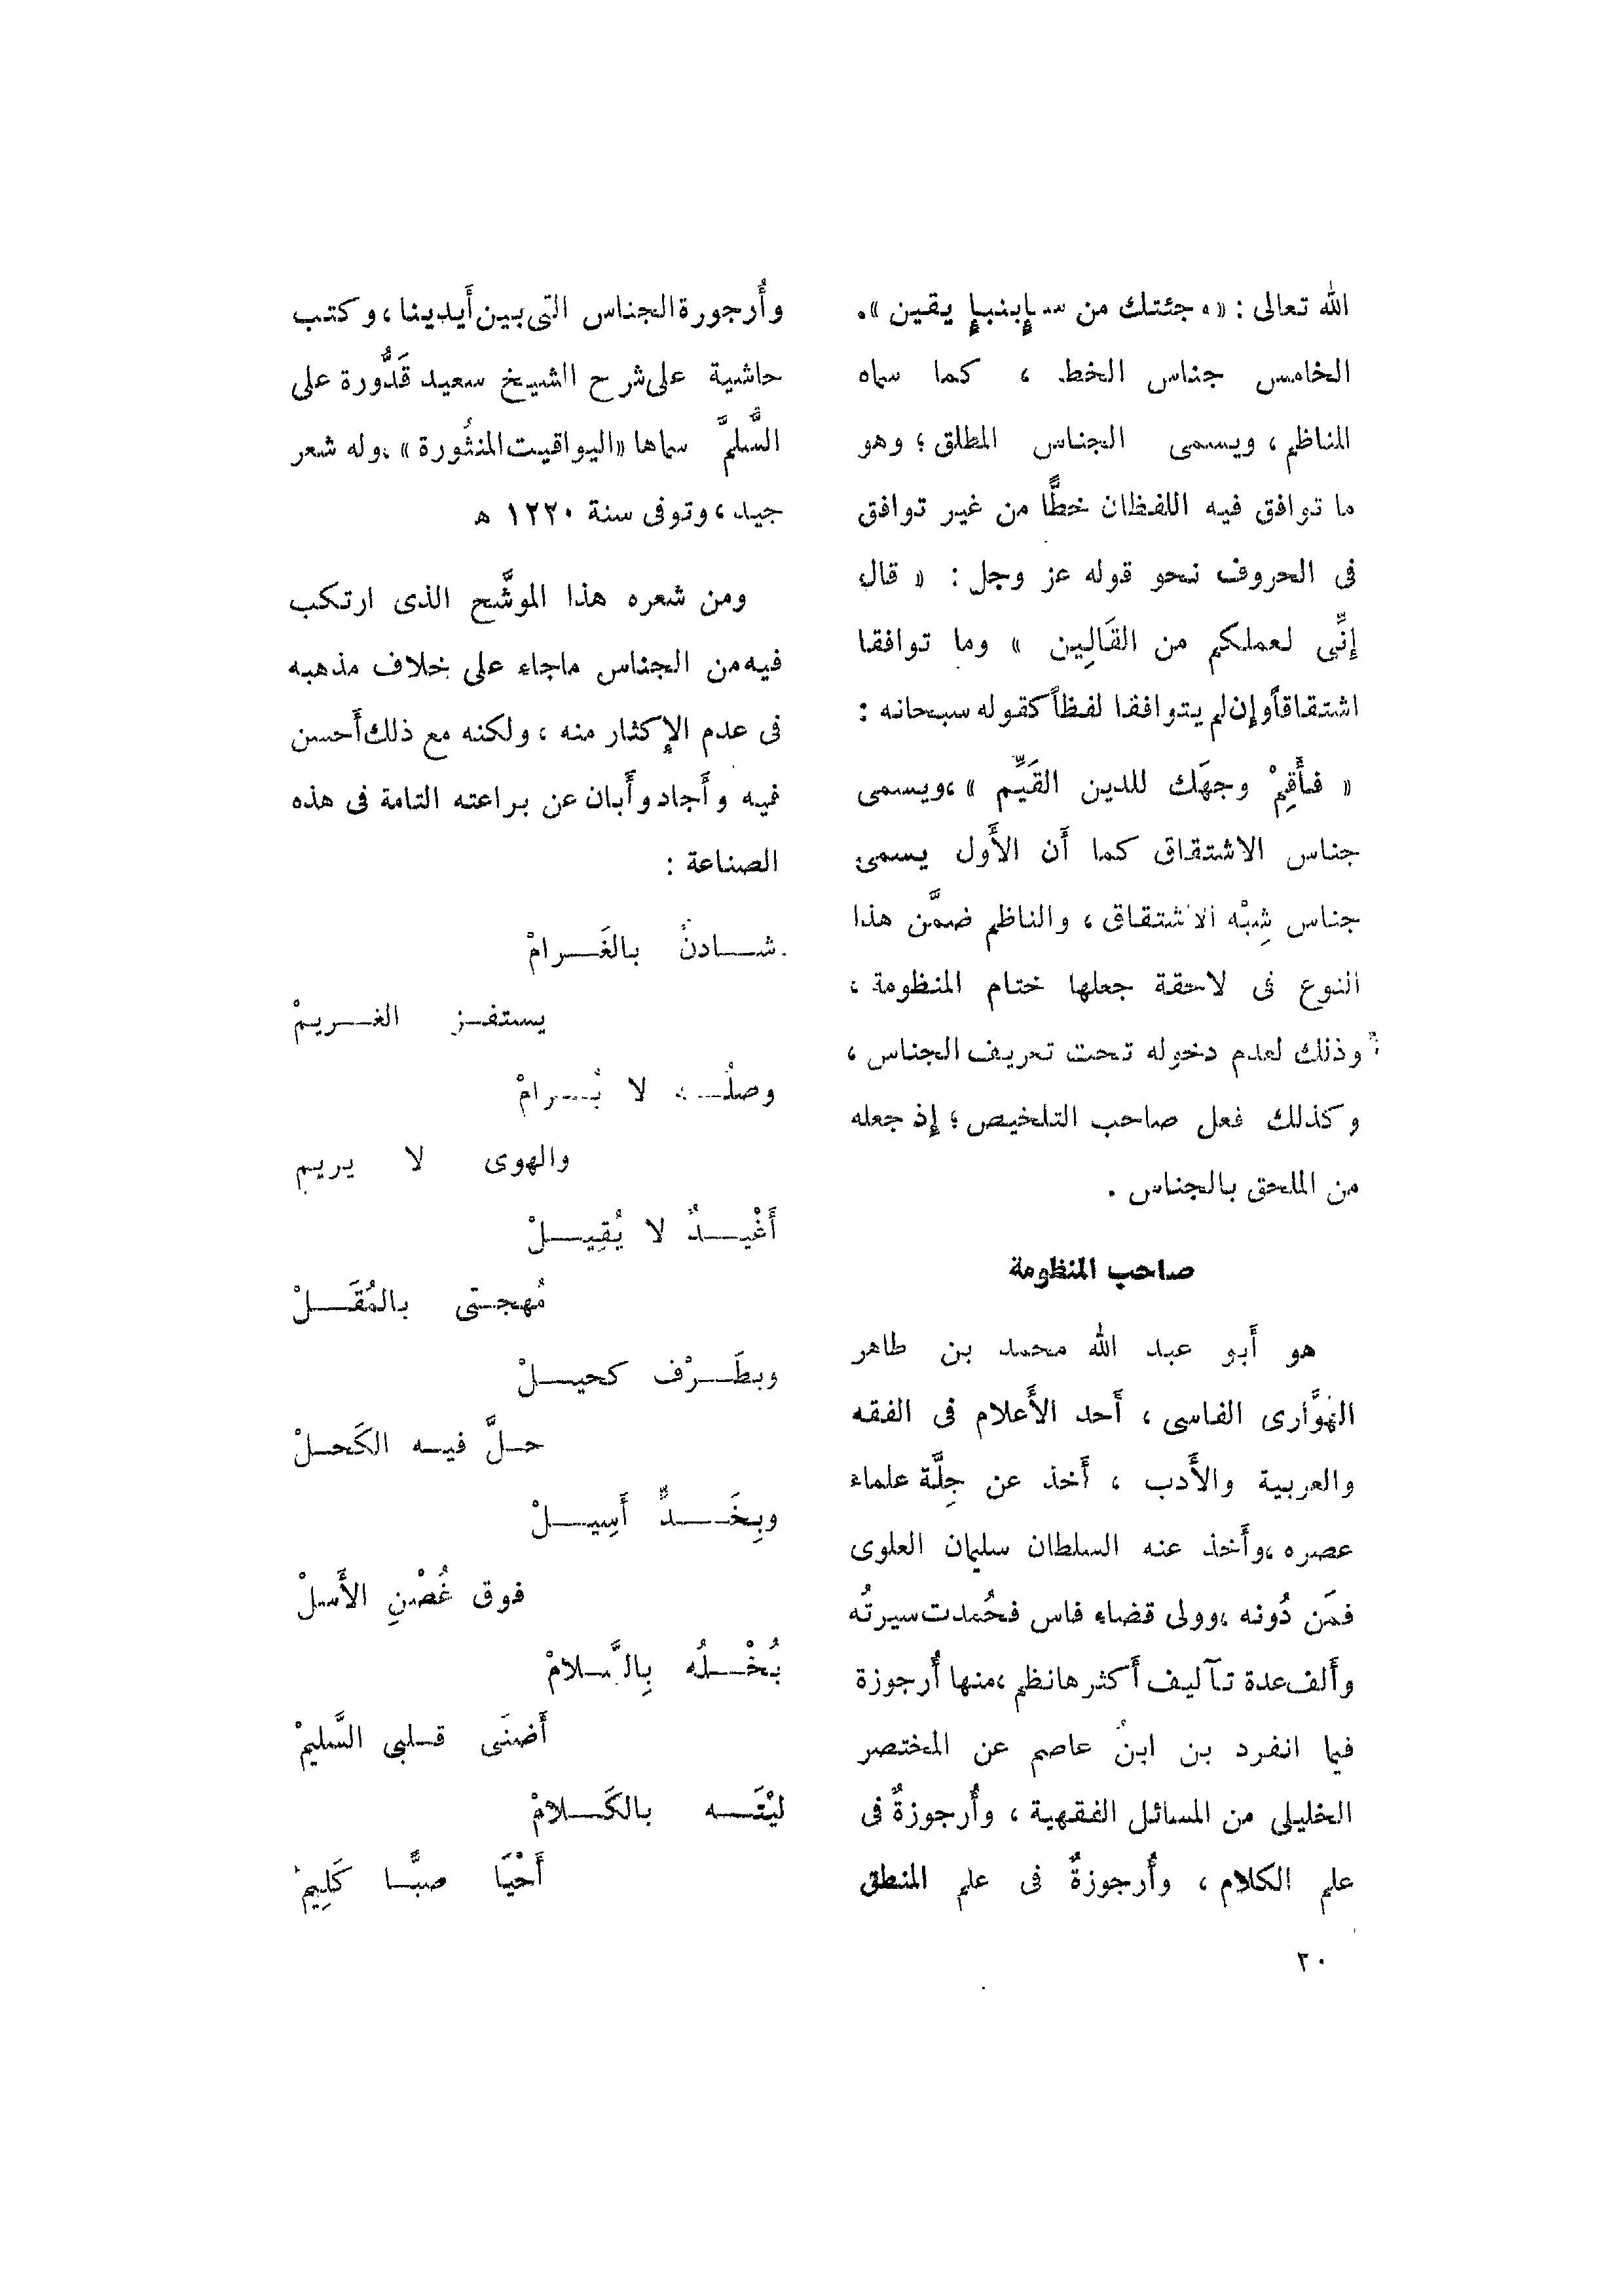 الله تعالى : « وجئتك من سبإ بنبإ يقين ».
الخامس جناس الخط ، كما سماه
الناظم ، ويسمى الجناس المطلق ؛ وهو
ما توافق فيه اللفظان خطًّا من غير توافق
فى الحروف نحو قوله عز وجل : « قال
إنِّى لعملكم من القَالِين » وما توافقا
اشتقاقاً وإن لم يتوافقا لفظاً كقوله سبحانه :
« فأَقِمْ وجهَك للدين القَيِّم » ، ويسمى
جناس الاشتقاق كما أَن الأَول يسمى
جناس شِبْه الاشتقاق ، والناظم ضمَّن هذا
النوع فى لاحقة جعلها ختام المنظومة ،
وذلك لعدم دخوله تحت تعريف الجناس ،
وكذلك فعل صاحب التلخيص ؛ إذ جعله
من الملحق بالجناس .
صاحب المنظومة
هو أَبو عبد الله محمد بن طاهر
الهوَّارى الفاسى ، أَحد الأَعلام فى الفقه
والعربية والأَدب ، أَخذ عن جِلَّة علماء
عصره ، وأَخذ عنه السلطان سليمان العلوى
فمَن دُونه ، وولى قضاء فاس فحُمدت سيرتُه
وأَلف عدة تآليف أَكثرها نظم ، منها أُرجوزة
فيما انفرد بن ابنُ عاصم عن المختصر
الخليلى من المسائل الفقهية ، وأُرجوزةٌ فى
علم الكلام ، وأُرجوزةٌ فى علم المنطق
وأُرجورة الجناس التى بين أَيدينا ، وكتب
حاشية على شرح الشيخ سعيد قَدُّورة على
السُّلمَّ سماها «اليواقيت المنثُورة» ، وله شعر
جيد ، وتوفى سنة ١٢٢٠ هـ
ومن شعره هذا الموشَّح الذى ارتكب
فيه من الجناس ماجاء على خلاف مذهبه
فى عدم الإكثار منه ، ولكنه مع ذلك أَحسن
فيه وأَجاد وأَبان عن براعته التامة فى هذه
الصناعة :
شـادنٌ بالغَـرامْ
يستفـز الغـريمْ
وصلُـه لا يُـرامْ
والهوى لا يريم
أَغْيـدٌ لا يُقِيـلْ
مُهجـتى بالمُقَـلْ
وبطَـرْف كحيـلْ
حـلَّ فيـه الكَحـلْ
وبِخَـدٌّ أَسِيـلْ
فوق غُصْنِ الأَسلْ
بُخْـلُه بِالسَّـلامْ
أَضنَى قـلبى السَّليمْ
ليْتَـه بالكَـلامْ
أَحْيَا صبًّـا كَلِيمْ
٢٠